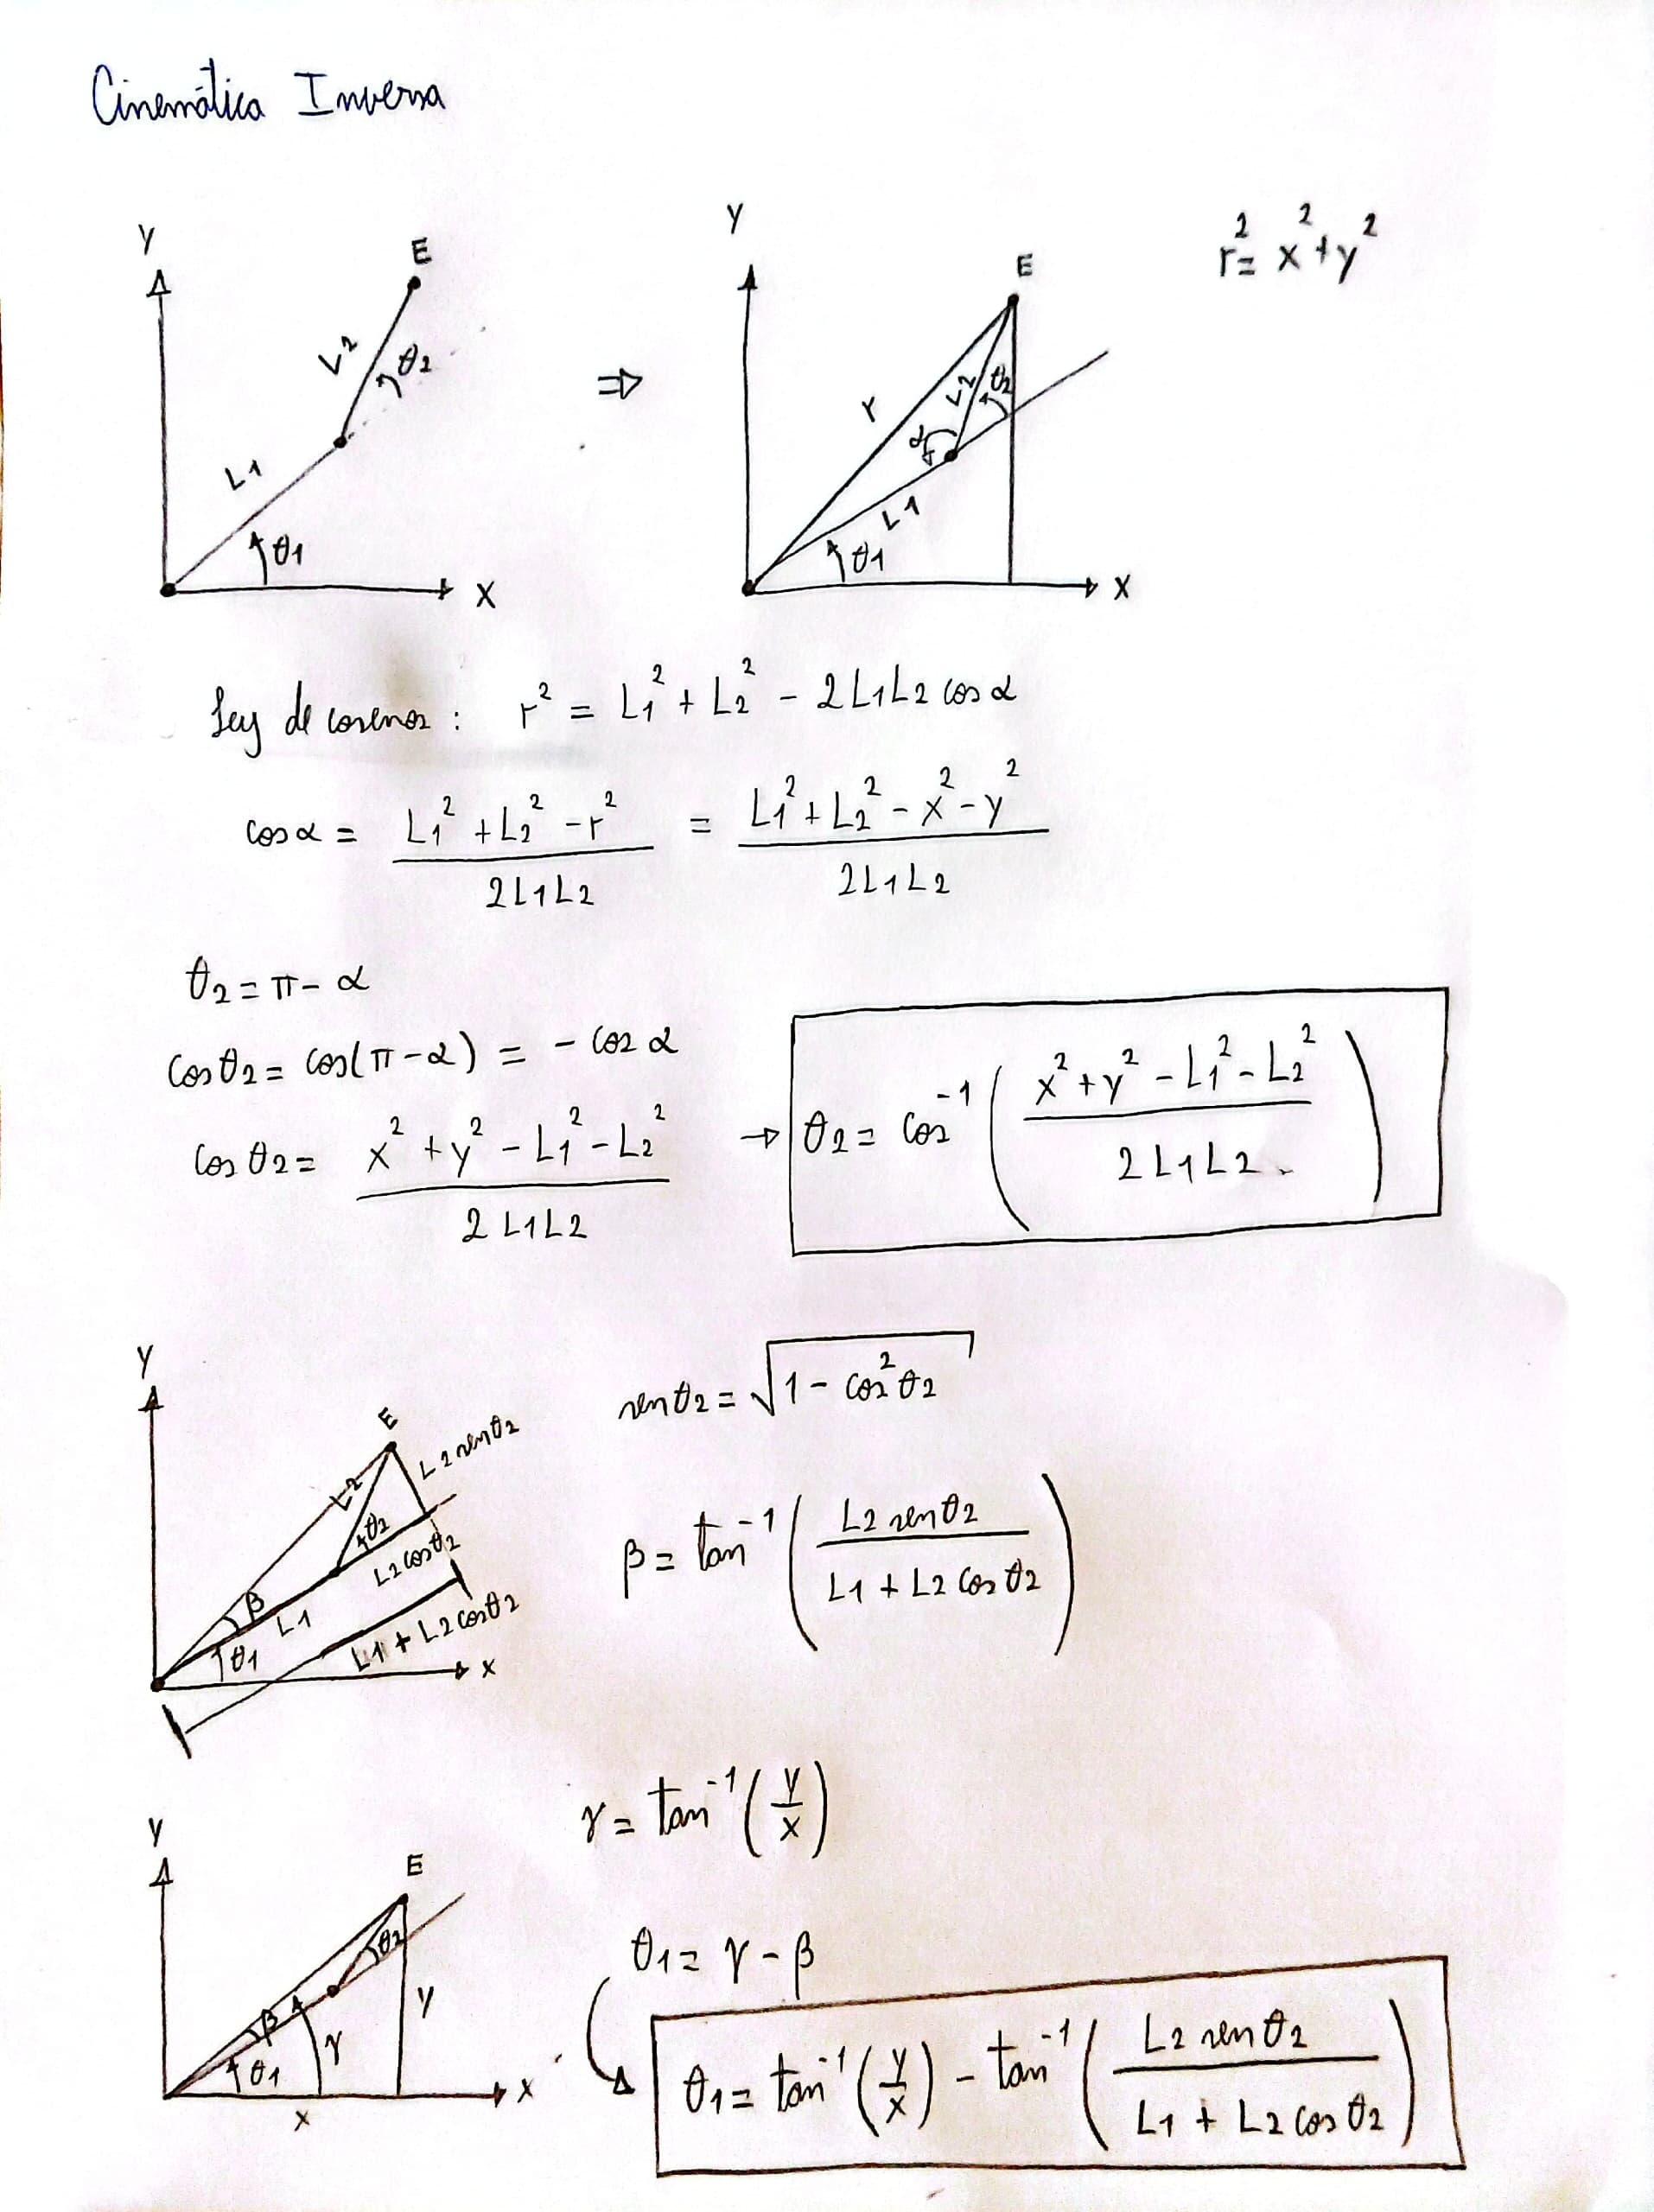 Cinemática Inversa
Y
E
L2
θ2
L1
θ1
X
⇒
Y
E
r
L2
θ2
α
L1
θ1
X
r² = x² + y²
Ley de cosenos : r² = L1² + L2² - 2L1L2 cos α
cos α = (L1² + L2² - r²) / (2L1L2) = (L1² + L2² - x² - y²) / (2L1L2)
θ2 = π - α
cos θ2 = cos(π - α) = - cos α
cos θ2 = (x² + y² - L1² - L2²) / (2L1L2) → θ2 = cos⁻¹((x² + y² - L1² - L2²) / (2L1L2))
Y
E
L2
L2 sen θ2
θ2
L2 cos θ2
β
L1
θ1
L1 + L2 cos θ2
X
sen θ2 = √(1 - cos² θ2)
β = tan⁻¹((L2 sen θ2) / (L1 + L2 cos θ2))
γ = tan⁻¹(y/x)
Y
E
θ2
β
γ
y
θ1
x
X
θ1 = γ - β
θ1 = tan⁻¹(y/x) - tan⁻¹((L2 sen θ2) / (L1 + L2 cos θ2))